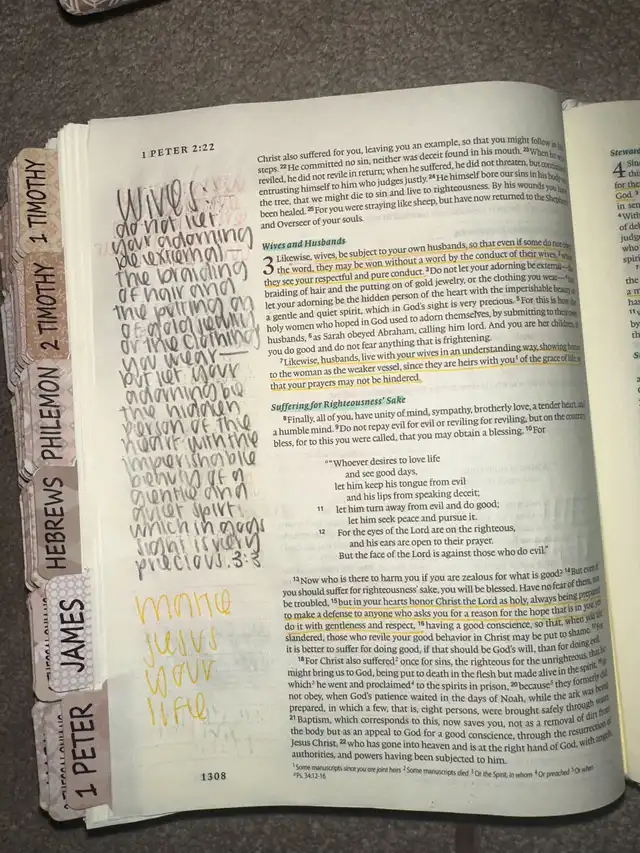 1 TIMOTHY
2 TIMOTHY
PHILEMON
HEBREWS
JAMES
1 PETER
1 PETER 2:22
Wives
do not let
your adorning
be external—
the braiding
of hair and
the putting on
of gold jewelry
or the clothing
you wear—
but let your
adorning be
the hidden
person of the
heart with the
imperishable
beauty of a
gentle and
quiet spirit,
which in gods
sight is very
precious. 3:3
make
jesus
your
life
1308
Christ also suffered for you, leaving you an example, so that you might follow in
steps. 22 He committed no sin, neither was deceit found in his mouth. 23 When he
reviled, he did not revile in return; when he suffered, he did not threaten, but
entrusting himself to him who judges justly. 24 He himself bore our sins in his body
the tree, that we might die to sin and live to righteousness. By his wounds you have
been healed. 25 For you were straying like sheep, but have now returned to the Shepherd
and Overseer of your souls.
Wives and Husbands
3 Likewise, wives, be subject to your own husbands, so that even if some do not
the word, they may be won without a word by the conduct of their wives, 2
they see your respectful and pure conduct. 3 Do not let your adorning be external—
braiding of hair and the putting on of gold jewelry, or the clothing you wear— 4
let your adorning be the hidden person of the heart with the imperishable beauty of
a gentle and quiet spirit, which in God's sight is very precious. 5 For this is how
holy women who hoped in God used to adorn themselves, by submitting to their
husbands, 6 as Sarah obeyed Abraham, calling him lord. And you are her children,
you do good and do not fear anything that is frightening.
7 Likewise, husbands, live with your wives in an understanding way, showing
to the woman as the weaker vessel, since they are heirs with you 1 of the grace of life,
that your prayers may not be hindered.
Suffering for Righteousness' Sake
8 Finally, all of you, have unity of mind, sympathy, brotherly love, a tender heart, and
a humble mind. 9 Do not repay evil for evil or reviling for reviling, but on the contrary
bless, for to this you were called, that you may obtain a blessing. 10 For
"Whoever desires to love life
and see good days,
let him keep his tongue from evil
and his lips from speaking deceit;
11 let him turn away from evil and do good;
let him seek peace and pursue it.
12 For the eyes of the Lord are on the righteous,
and his ears are open to their prayer.
But the face of the Lord is against those who do evil."
13 Now who is there to harm you if you are zealous for what is good? 14 But even if
you should suffer for righteousness' sake, you will be blessed. Have no fear of them, nor
be troubled, 15 but in your hearts honor Christ the Lord as holy, always being prepared
to make a defense to anyone who asks you for a reason for the hope that is in you; yet
do it with gentleness and respect, 16 having a good conscience, so that, when you are
slandered, those who revile your good behavior in Christ may be put to shame. 17 For
it is better to suffer for doing good, if that should be God's will, than for doing evil.
18 For Christ also suffered 2 once for sins, the righteous for the unrighteous, that he
might bring us to God, being put to death in the flesh but made alive in the spirit, 19 in
which 3 he went and proclaimed 4 to the spirits in prison, 20 because 5 they formerly did
not obey, when God's patience waited in the days of Noah, while the ark was being
prepared, in which a few, that is, eight persons, were brought safely through water.
21 Baptism, which corresponds to this, now saves you, not as a removal of dirt from
the body but as an appeal to God for a good conscience, through the resurrection of
Jesus Christ, 22 who has gone into heaven and is at the right hand of God, with angels,
authorities, and powers having been subjected to him.
1 Some manuscripts since you are joint heirs 2 Some manuscripts died 3 Or the Spirit, in whom 4 Or preached 5 Or when
Ps. 34:12-16